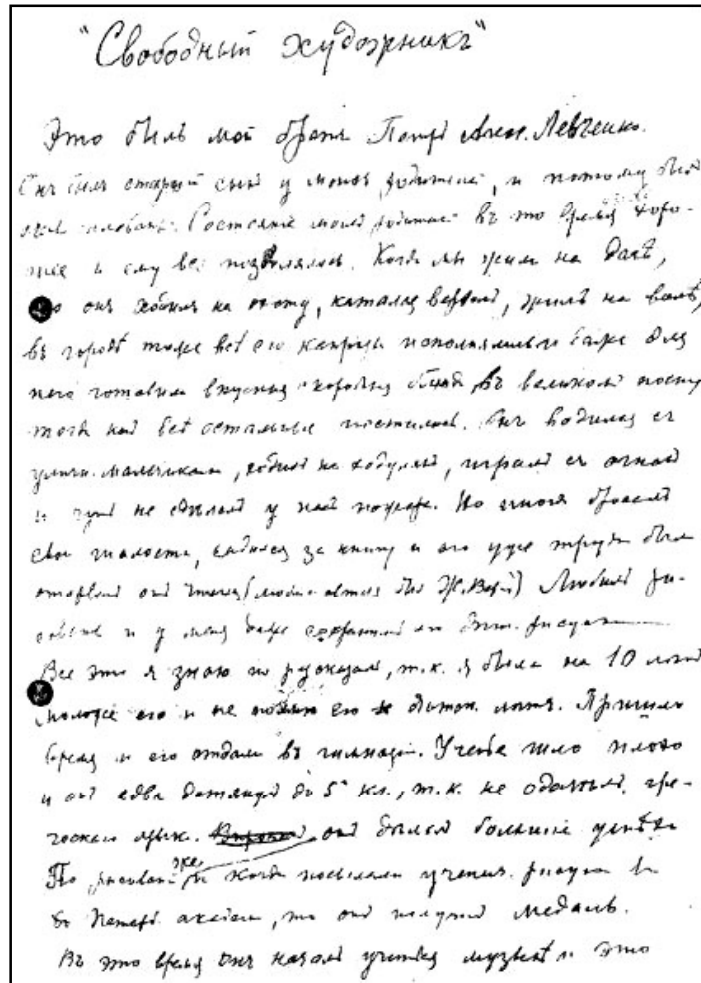 "Свободный художникъ"
Это былъ мой братъ Петръ Алек. Левченко.
Онъ былъ старшій сынъ у моихъ родителей, и потому былъ
Состояніе моихъ родителей въ то время хоро-
шее и ему все позволялось. Когда мы жили на дачѣ,
то онъ ходилъ на охоту, катался верхомъ, жилъ на волѣ,
въ городѣ тоже всѣ его капризы исполнялись и даже для
него готовили вкусныя скоромныя блюда въ великомъ посту
тогда какъ всѣ остальные постились. Онъ водился съ
уличн. мальчиками, ходилъ на ходуляхъ, игралъ съ огнемъ
и чуть не сдѣлалъ у насъ пожара. Но иногда бросалъ
свои шалости, садился за книгу и его уже трудно было
оторвать отъ чтенія (любим. авторъ былъ Ж. Вернъ) Любилъ ри-
совать и у меня даже сохранились
Все это я знаю по разсказамъ, т.к. я была на 10 лѣтъ
моложе его и не помню его дѣтск. лѣтъ. Пришло
время и его отдали въ гимназію. Ученье шло плохо
и онъ едва дотянулъ до 5° кл., т.к. не одолѣлъ гре-
ческаго языка. онъ дѣлалъ большіе успѣхи
По рисованію же и когда посылали ученич. рисунки въ
въ Петерб. академію, то онъ получилъ медаль.
Въ это время онъ началъ учиться музыкѣ и это